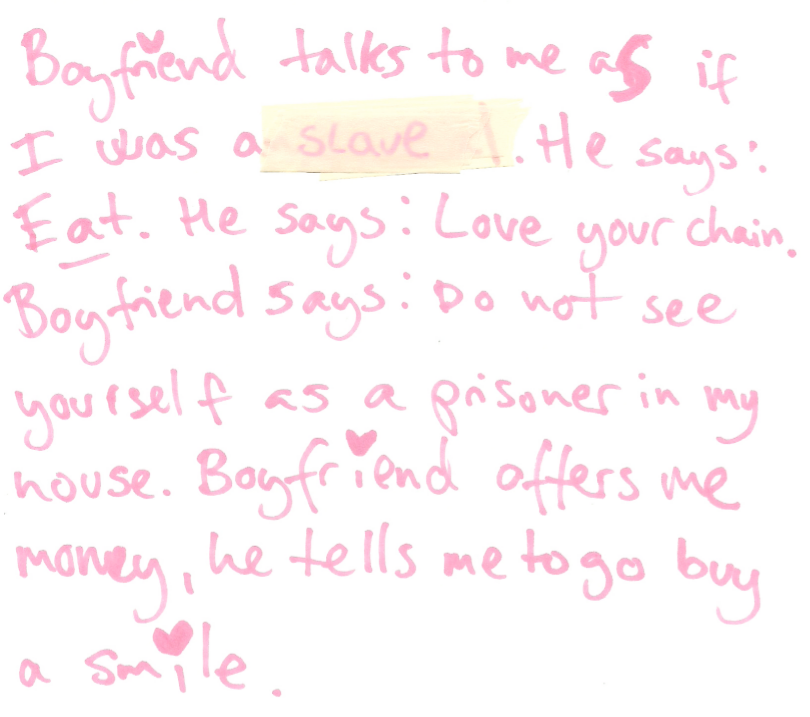 Boyfriend talks to me as if
I was a slave. He says:
Eat. He says: Love your chain.
Boyfriend says: Do not see
yourself as a prisoner in my
house. Boyfriend offers me
money, he tells me to go buy
a smile.